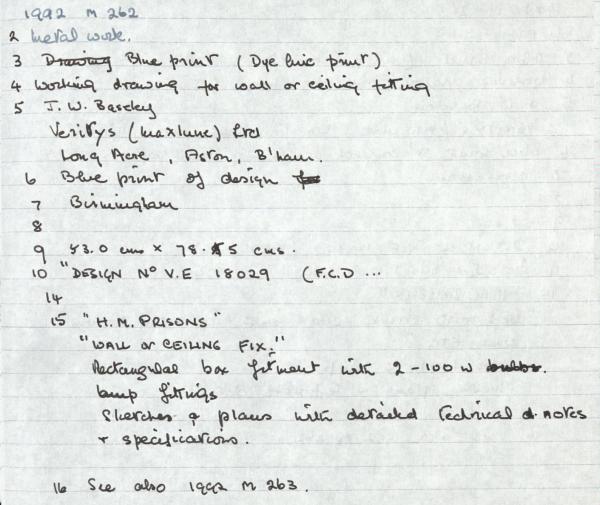 1992 M 262
2 Metal work.
3 Drawing Blue print (Dye line print)
4 Working drawing for wall or ceiling fitting
5 J. W. Baseley
Veritys (Maxlume) Ltd
Long Acre, Aston, B'ham.
6 Blue print of design
7 Birmingham
8
9 53.0 cms x 78.5 cms.
10 "DESIGN No V.E 18029 (F.C.D ...
14
15 "H.M. PRISONS"
"WALL or CEILING FIX."
Rectangular box fitment with 2 - 100 W bulbs.
lamp fittings
Sketches & plans with detailed technical d. notes
+ specifications.
16 See also 1992 M 263.